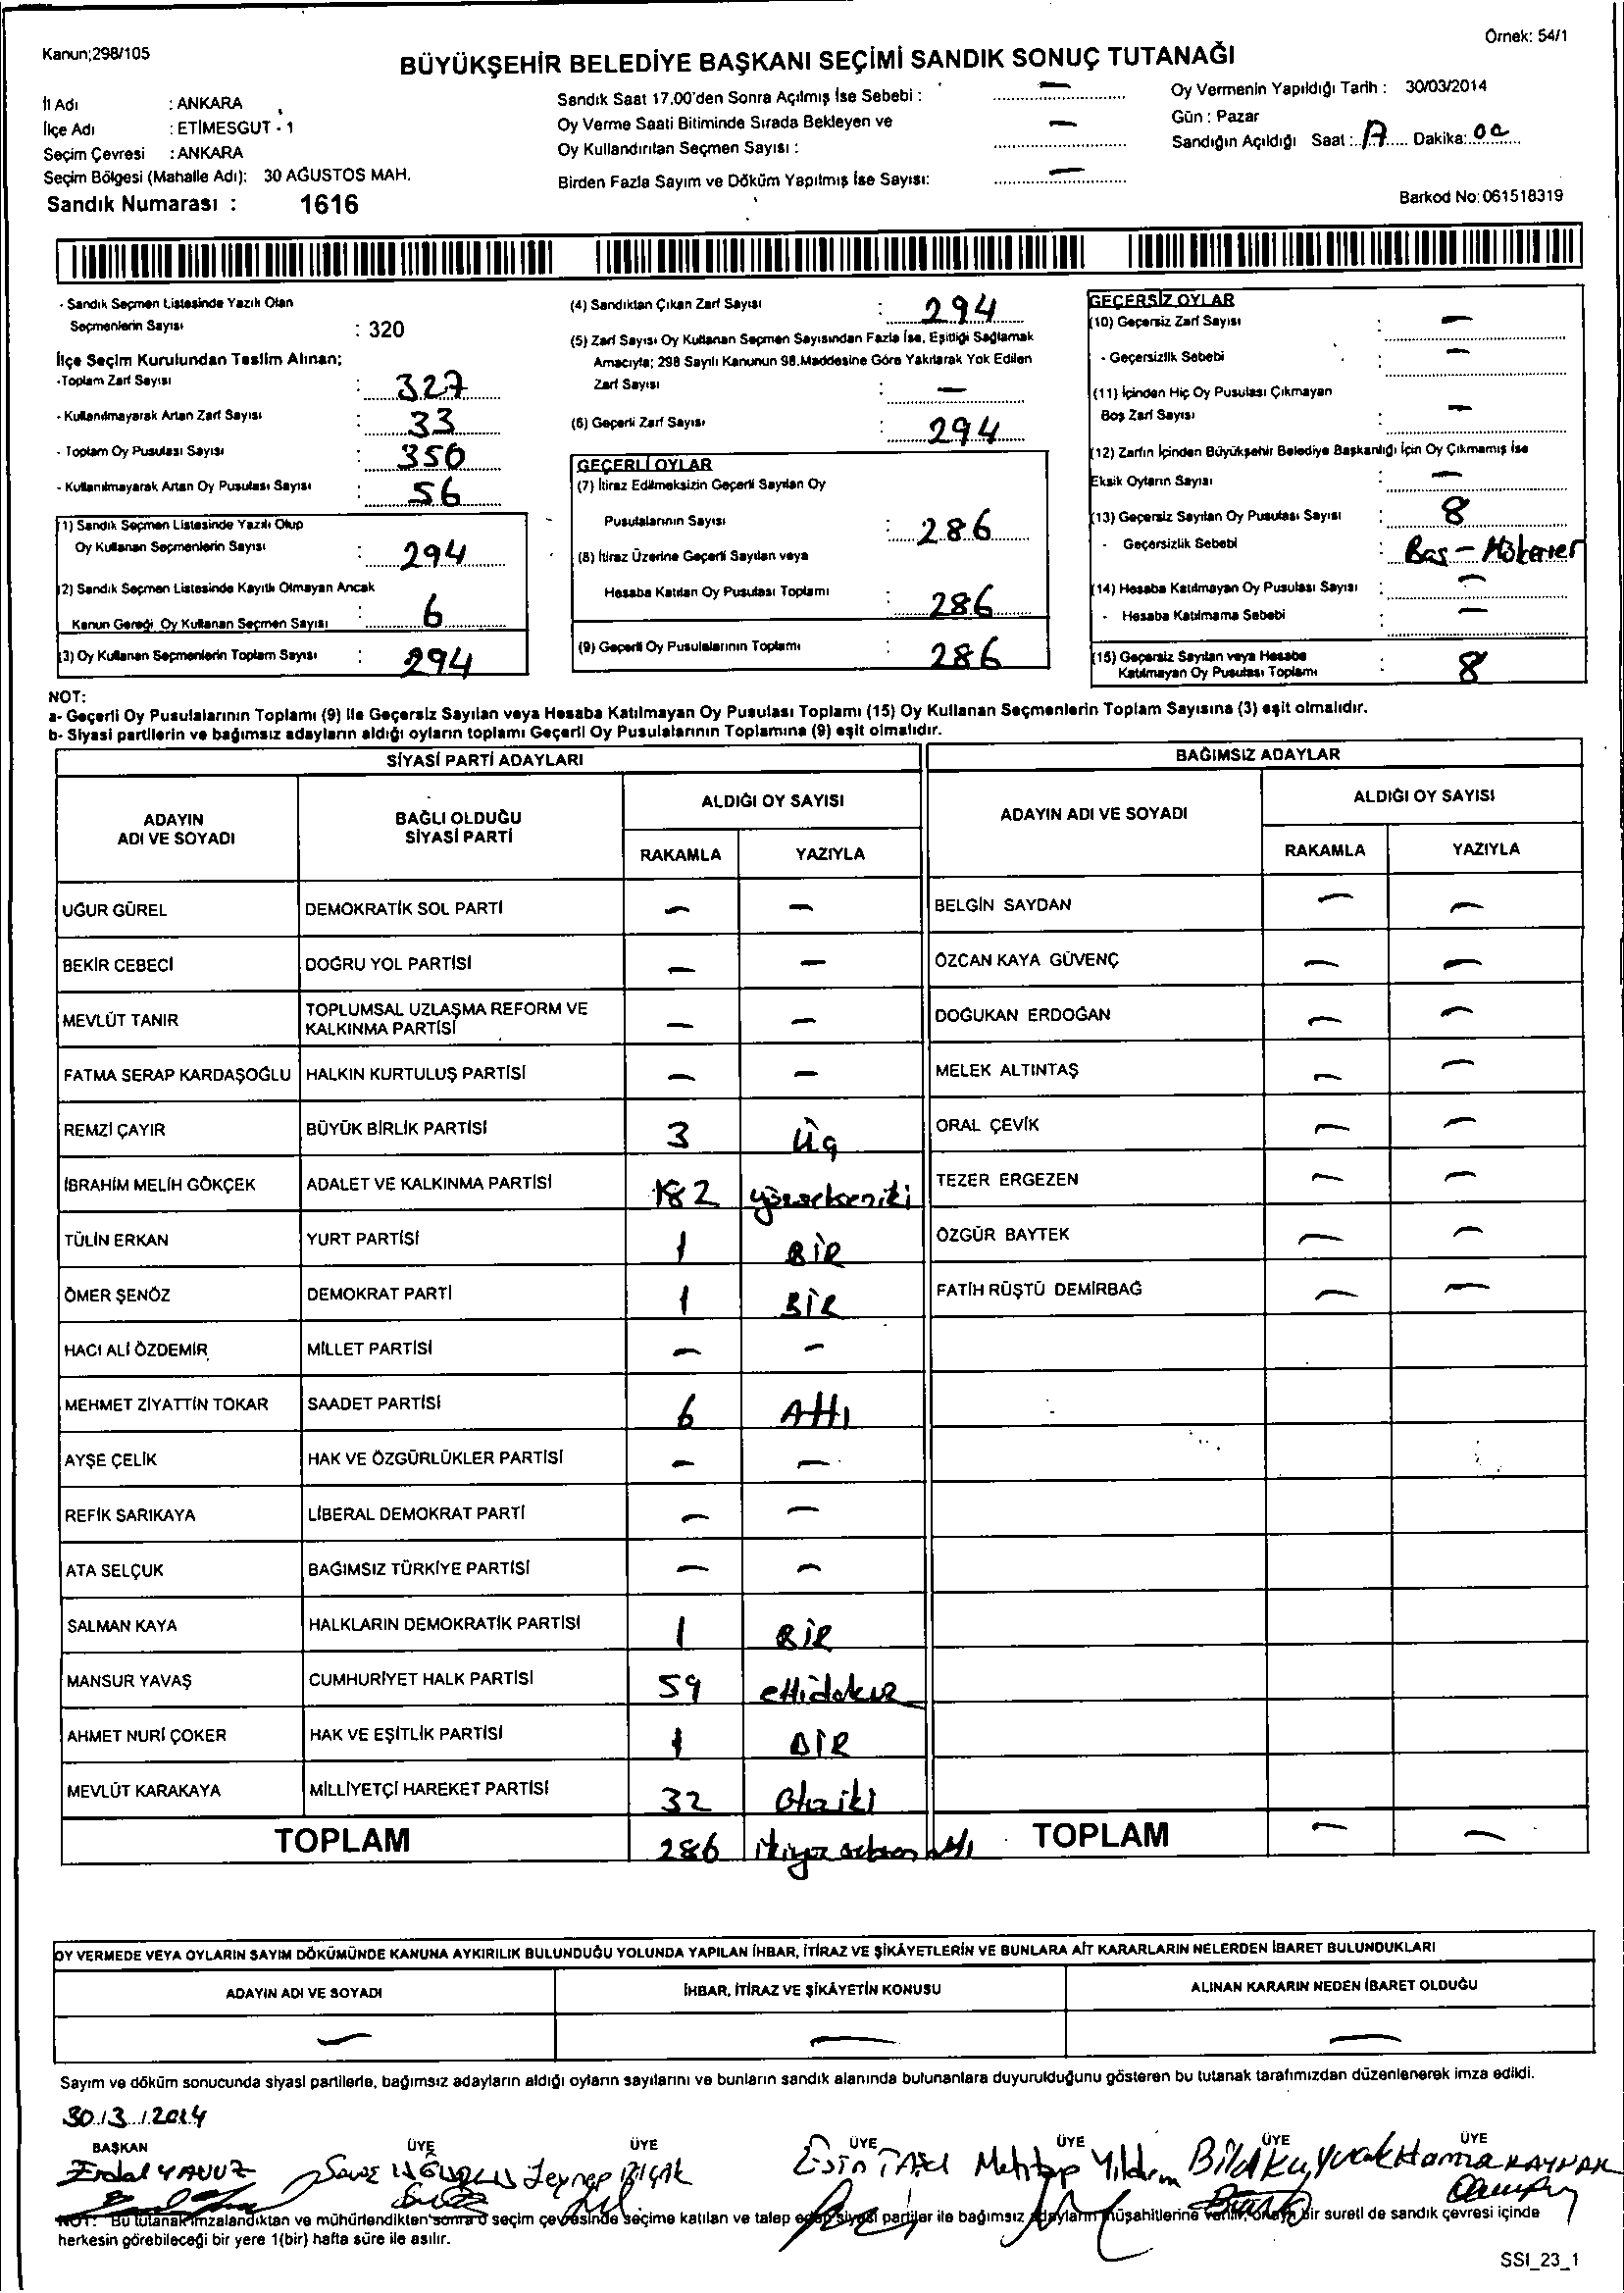 Kanun;298/105
Örnek: 54/1
BÜYÜKŞEHİR BELEDİYE BAŞKANI SEÇİMİ SANDIK SONUÇ TUTANAĞI
İl Adı : ANKARA
İlçe Adı : ETİMESGUT - 1
Seçim Çevresi : ANKARA
Seçim Bölgesi (Mahalle Adı): 30 AĞUSTOS MAH.
Sandık Numarası : 1616
Sandık Saat 17.00'den Sonra Açılmış İse Sebebi : —
Oy Verme Saati Bitiminde Sırada Bekleyen ve
Oy Kullandırılan Seçmen Sayısı : —
Birden Fazla Sayım ve Döküm Yapılmış İse Sayısı: —
Oy Vermenin Yapıldığı Tarih : 30/03/2014
Gün : Pazar
Sandığın Açıldığı Saat : 17 Dakika: 00
Barkod No: 061518319
- Sandık Seçmen Listesinde Yazılı Olan
Seçmenlerin Sayısı : 320
İlçe Seçim Kurulundan Teslim Alınan;
-Toplam Zarf Sayısı : 327
- Kullanılmayarak Artan Zarf Sayısı : 33
- Toplam Oy Pusulası Sayısı : 350
- Kullanılmayarak Artan Oy Pusulası Sayısı : 56
(1) Sandık Seçmen Listesinde Yazılı Olup
Oy Kullanan Seçmenlerin Sayısı : 294
(2) Sandık Seçmen Listesinde Kayıtlı Olmayan Ancak
Kanun Gereği Oy Kullanan Seçmen Sayısı : 6
(3) Oy Kullanan Seçmenlerin Toplam Sayısı : 294
(4) Sandıktan Çıkan Zarf Sayısı : 294
(5) Zarf Sayısı Oy Kullanan Seçmen Sayısından Fazla İse, Eşitliği Sağlamak
Amacıyla; 298 Sayılı Kanunun 98.Maddesine Göre Yakılarak Yok Edilen
Zarf Sayısı : —
(6) Geçerli Zarf Sayısı : 294
GEÇERLİ OYLAR
(7) İtiraz Edilmeksizin Geçerli Sayılan Oy
Pusulalarının Sayısı : 286
(8) İtiraz Üzerine Geçerli Sayılan veya
Hesaba Katılan Oy Pusulası Toplamı : 286
(9) Geçerli Oy Pusulalarının Toplamı : 286
GEÇERSİZ OYLAR
(10) Geçersiz Zarf Sayısı : —
- Geçersizlik Sebebi : —
(11) İçinden Hiç Oy Pusulası Çıkmayan
Boş Zarf Sayısı : —
(12) Zarfın İçinden Büyükşehir Belediye Başkanlığı İçin Oy Çıkmamış İse
Eksik Oyların Sayısı : —
(13) Geçersiz Sayılan Oy Pusulası Sayısı : 8
- Geçersizlik Sebebi :
(14) Hesaba Katılmayan Oy Pusulası Sayısı : —
- Hesaba Katılmama Sebebi : —
(15) Geçersiz Sayılan veya Hesaba
Katılmayan Oy Pusulası Toplamı : 8
NOT:
a- Geçerli Oy Pusulalarının Toplamı (9) ile Geçersiz Sayılan veya Hesaba Katılmayan Oy Pusulası Toplamı (15) Oy Kullanan Seçmenlerin Toplam Sayısına (3) eşit olmalıdır.
b- Siyasi partilerin ve bağımsız adayların aldığı oyların toplamı Geçerli Oy Pusulalarının Toplamına (9) eşit olmalıdır.
SİYASİ PARTİ ADAYLARI
ADAYIN ADI VE SOYADI
BAĞLI OLDUĞU SİYASİ PARTİ
ALDIĞI OY SAYISI
RAKAMLA YAZIYLA
UĞUR GÜREL DEMOKRATİK SOL PARTİ — —
BEKİR CEBECİ DOĞRU YOL PARTİSİ — —
MEVLÜT TANIR TOPLUMSAL UZLAŞMA REFORM VE KALKINMA PARTİSİ — —
FATMA SERAP KARDAŞOĞLU HALKIN KURTULUŞ PARTİSİ — —
REMZİ ÇAYIR BÜYÜK BİRLİK PARTİSİ 3 üç
İBRAHİM MELİH GÖKÇEK ADALET VE KALKINMA PARTİSİ 182 yüzsekseniki
TÜLİN ERKAN YURT PARTİSİ 1 BİR
ÖMER ŞENÖZ DEMOKRAT PARTİ 1 BİR
HACI ALİ ÖZDEMİR MİLLET PARTİSİ — —
MEHMET ZİYATTİN TOKAR SAADET PARTİSİ 6 Altı
AYŞE ÇELİK HAK VE ÖZGÜRLÜKLER PARTİSİ — —
REFİK SARIKAYA LİBERAL DEMOKRAT PARTİ — —
ATA SELÇUK BAĞIMSIZ TÜRKİYE PARTİSİ — —
SALMAN KAYA HALKLARIN DEMOKRATİK PARTİSİ 1 BİR
MANSUR YAVAŞ CUMHURİYET HALK PARTİSİ 59 ellidokuz
AHMET NURİ ÇOKER HAK VE EŞİTLİK PARTİSİ 1 BİR
MEVLÜT KARAKAYA MİLLİYETÇİ HAREKET PARTİSİ 32 Otuziki
TOPLAM 286 ikiyüz seksen altı
BAĞIMSIZ ADAYLAR
ADAYIN ADI VE SOYADI
ALDIĞI OY SAYISI
RAKAMLA YAZIYLA
BELGİN SAYDAN — —
ÖZCAN KAYA GÜVENÇ — —
DOĞUKAN ERDOĞAN — —
MELEK ALTINTAŞ — —
ORAL ÇEVİK — —
TEZER ERGEZEN — —
ÖZGÜR BAYTEK — —
FATİH RÜŞTÜ DEMİRBAĞ — —
TOPLAM — —
OY VERMEDE VEYA OYLARIN SAYIM DÖKÜMÜNDE KANUNA AYKIRILIK BULUNDUĞU YOLUNDA YAPILAN İHBAR, İTİRAZ VE ŞİKÂYETLERİN VE BUNLARA AİT KARARLARIN NELERDEN İBARET BULUNDUKLARI
ADAYIN ADI VE SOYADI İHBAR, İTİRAZ VE ŞİKÂYETİN KONUSU ALINAN KARARIN NEDEN İBARET OLDUĞU
— — —
Sayım ve döküm sonucunda siyasi partilerle, bağımsız adayların aldığı oyların sayılarını ve bunların sandık alanında bulunanlara duyurulduğunu gösteren bu tutanak tarafımızdan düzenlenerek imza edildi.
30/3/2014
BAŞKAN ÜYE ÜYE ÜYE ÜYE ÜYE ÜYE
Erdal YAVUZ Zeynep BIÇAK Esin Mehtap Yıldırım Hamza KAYNAK
NOT: Bu tutanak imzalandıktan ve mühürlendikten sonra o seçim çevresinde seçime katılan ve talep eden siyasi partiler ile bağımsız adayların müşahitlerine verilir, bir sureti de sandık çevresi içinde
herkesin görebileceği bir yere 1(bir) hafta süre ile asılır.
SSI_23_1